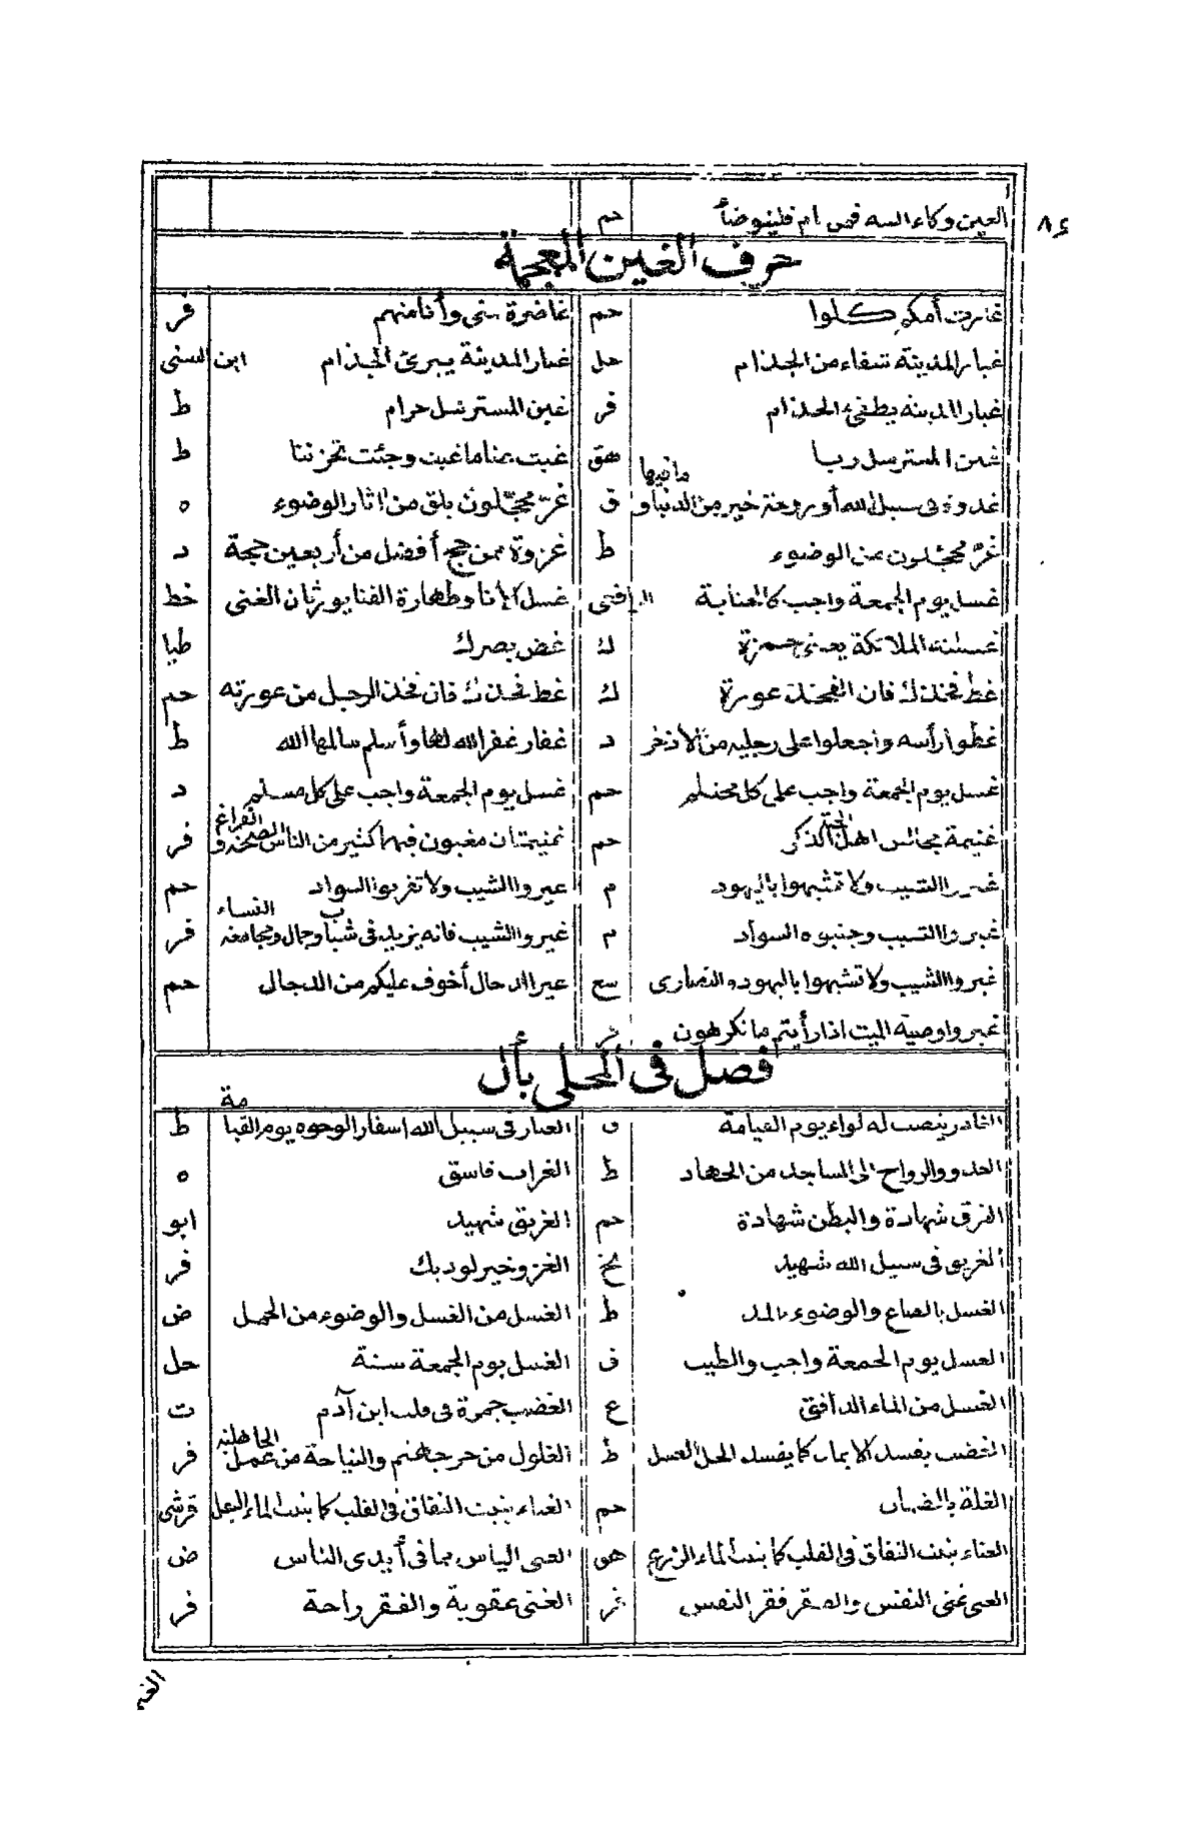 ٨٤
العين وكاء السه فمن نام فليتوضأ حم
حرف الغين المعجمة
غارت أمكم كلوا حم غاضرة منى وأنا منهم فر
غبار المدينة شفاء من الجذام حل غبار المدينة يبرئ الجذام ابن السنى
غبار المدينه يطفئ الجذام فر غبن المسترسل حرام ط
غبن المسترسل ربا هق غبت عنا ما غبت وجئت تحزننا ط
غدوة فى سبيل الله أو روحة خير من الدنيا و مافيها ق غرّ محجّلون بلق من اثار الوضوء ه
غرّ محجلون من الوضوء ط غزوة ممن حج أفضل من أربعين حجة د
غسل يوم الجمعة واجب كالجنابة الرافعى غسل الإناء وطهارة الفنا يورثان الغنى خط
غسلته الملائكة يعنى حمزة ك غض بصرك طيا
غط فخذك فان الفخذ عورة ك غط فخذك فان فخذ الرجل من عورته حم
غطوا رأسه واجعلوا على رجليه من الأذخر د غفار غفر الله لها وأسلم سالمها الله ط
غسل يوم الجمعة واجب على كل محتلم حم غسل يوم الجمعة واجب على كل مسلم د
غنيمة مجالس اهل الذكر الجنة حم غنيمتان مغبون فيهما كثير من الناس الصحة و الفراغ فر
غيروا الشيب ولا تشبهوا باليهود م غيروا الشيب ولا تقربوا السواد حم
غيروا الشيب وجنبوه السواد م غيروا الشيب فانه يزيد فى شباب وجمال ومجامعة النساء فر
غيروا الشيب ولا تشبهوا باليهود والنصارى سع غير الدجال أخوف عليكم من الدجال حم
غيروا وصية الميت اذا رأيتم ما تكرهون
فصل فى المحلى بأل
الغادر ينصب له لواء يوم القيامة ق الغبار فى سبيل الله اسفار الوجوه يوم القيامة ط
الغدو والرواح الى المساجد من الجهاد ط الغراب فاسق ه
الغرق شهادة والبطن شهادة حم الغريق شهيد ابو
الغريق فى سبيل الله شهيد تخ الغزو خير لوديك فر
الغسل بالصاع والوضوء بالمد ط الغسل من الغسل والوضوء من الحمل ض
الغسل يوم الجمعة واجب والطيب ق الغسل يوم الجمعة سنة حل
الغسل من الماء الدافق ع الغضب جمرة فى قلب ابن آدم ت
الغضب يفسد الايمان كما يفسد الخل العسل ط الغلول من حر جهنم والنياحة من عمل الجاهلية فر
الغلة بالضمان حم الغناء ينبت النفاق فى القلب كما ينبت الماء البقل قرشى
الغناء ينبت النفاق فى القلب كما ينبت الماء الزرع هق الغنى الياس مما فى أيدى الناس ض
الغنى غنى النفس والفقر فقر النفس فر الغنى عقوبة والفقر راحة فر